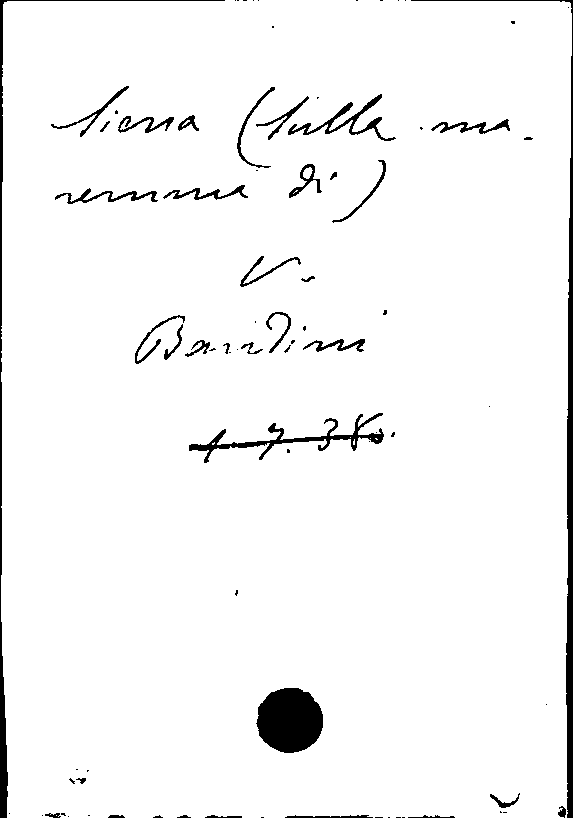 Siena (Sulla ma-
remma di)
V.
Bandini
1. 7. 38.